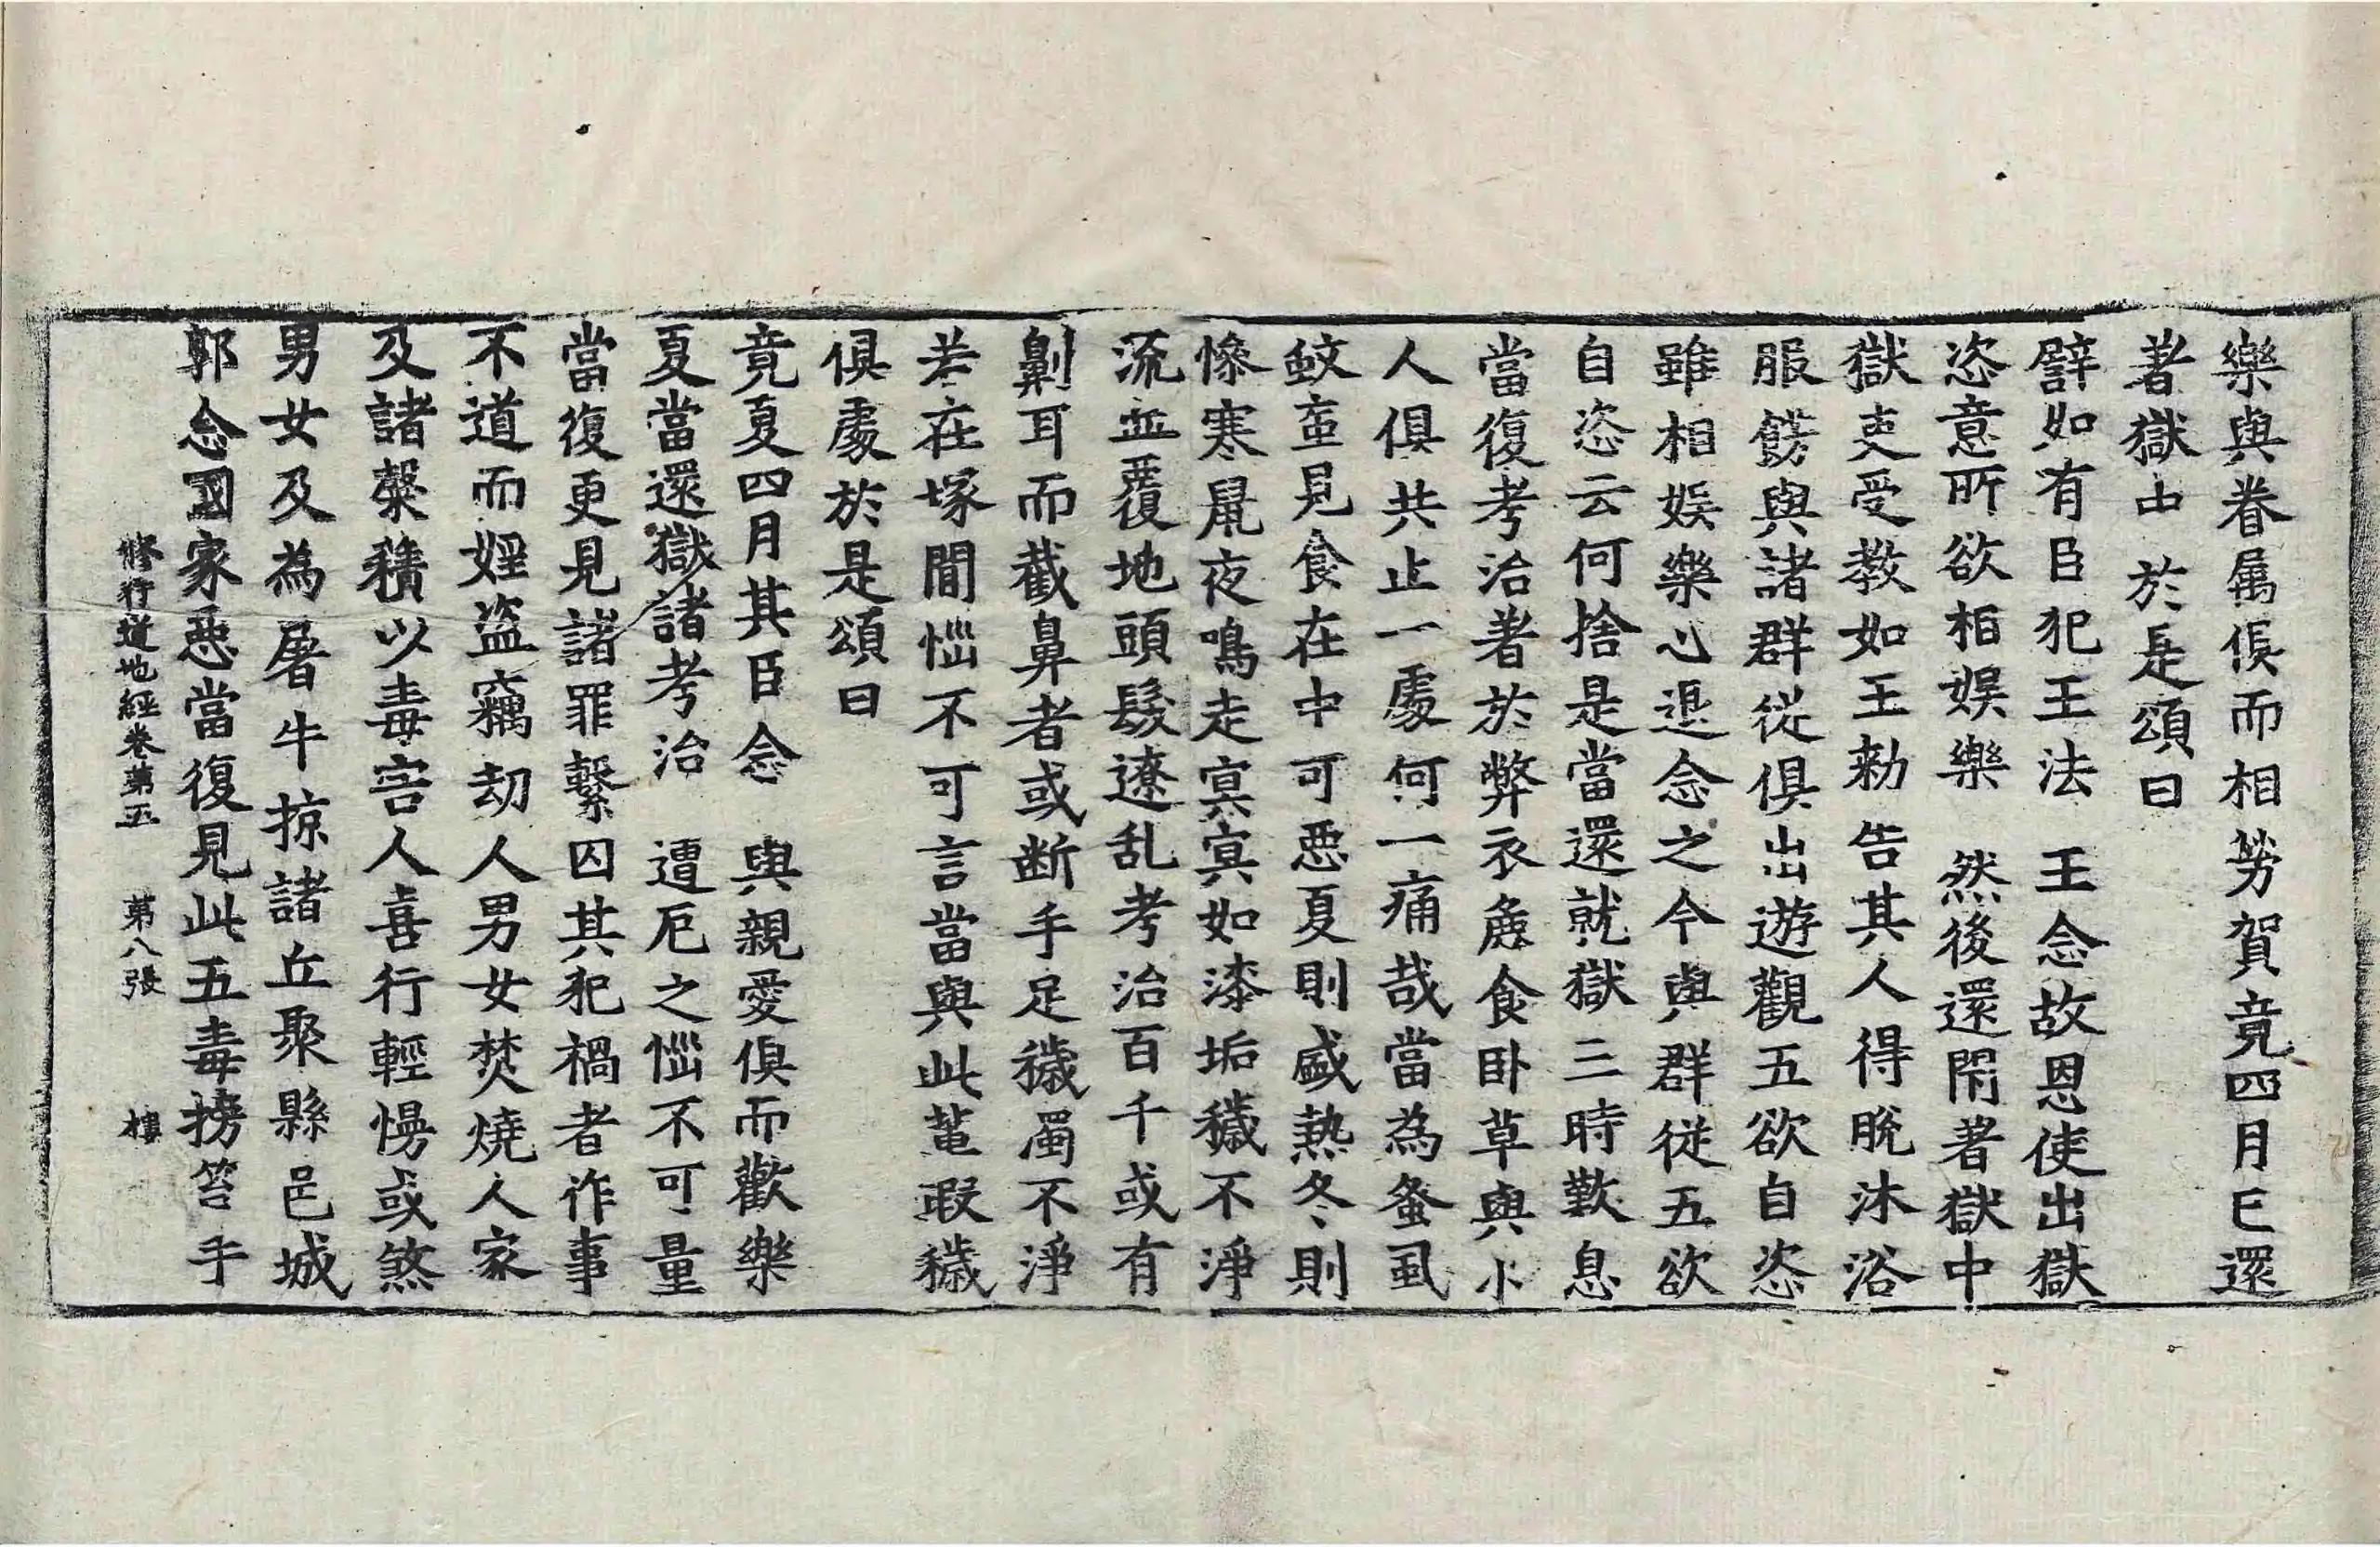 樂與眷属俱而相勞賀竟四月已還
著獄中 於是頌曰
譬如有臣犯王法 王念故恩使出獄
恣意所欲相娛樂 然後還閇著獄中
獄吏受教如王勑告其人得脫沐浴
服餝與諸群從俱出遊觀五欲自恣
雖相娛樂心退念之今與群從五欲
自恣云何捨是當還就獄三時歎息
當復考治著於弊衣麁食卧草與小
人俱共止一處何一痛哉當為蚤虱
蚊䖟見食在中可惡夏則盛熱冬則
慘寒鼠夜鳴走㝠㝠如漆垢穢不淨
流血覆地頭髮遼乱考治百千或有
劓耳而截鼻者或断手足穢濁不淨
若在塚間惱不可言當與此葷瑕穢
俱處於是頌曰
竟夏四月其臣念 與親愛俱而歡樂
夏當還獄諸考治 遭厄之惱不可量
當復更見諸罪繫囚其犯禍者作事
不道而婬盗竊劫人男女焚燒人家
及諸𥡯積以毒害人喜行輕慢或煞
男女及為屠牛掠諸丘聚縣邑城
郭念國家惡當復見此五毒搒笞手
修行道地經卷第五 第八張 樓